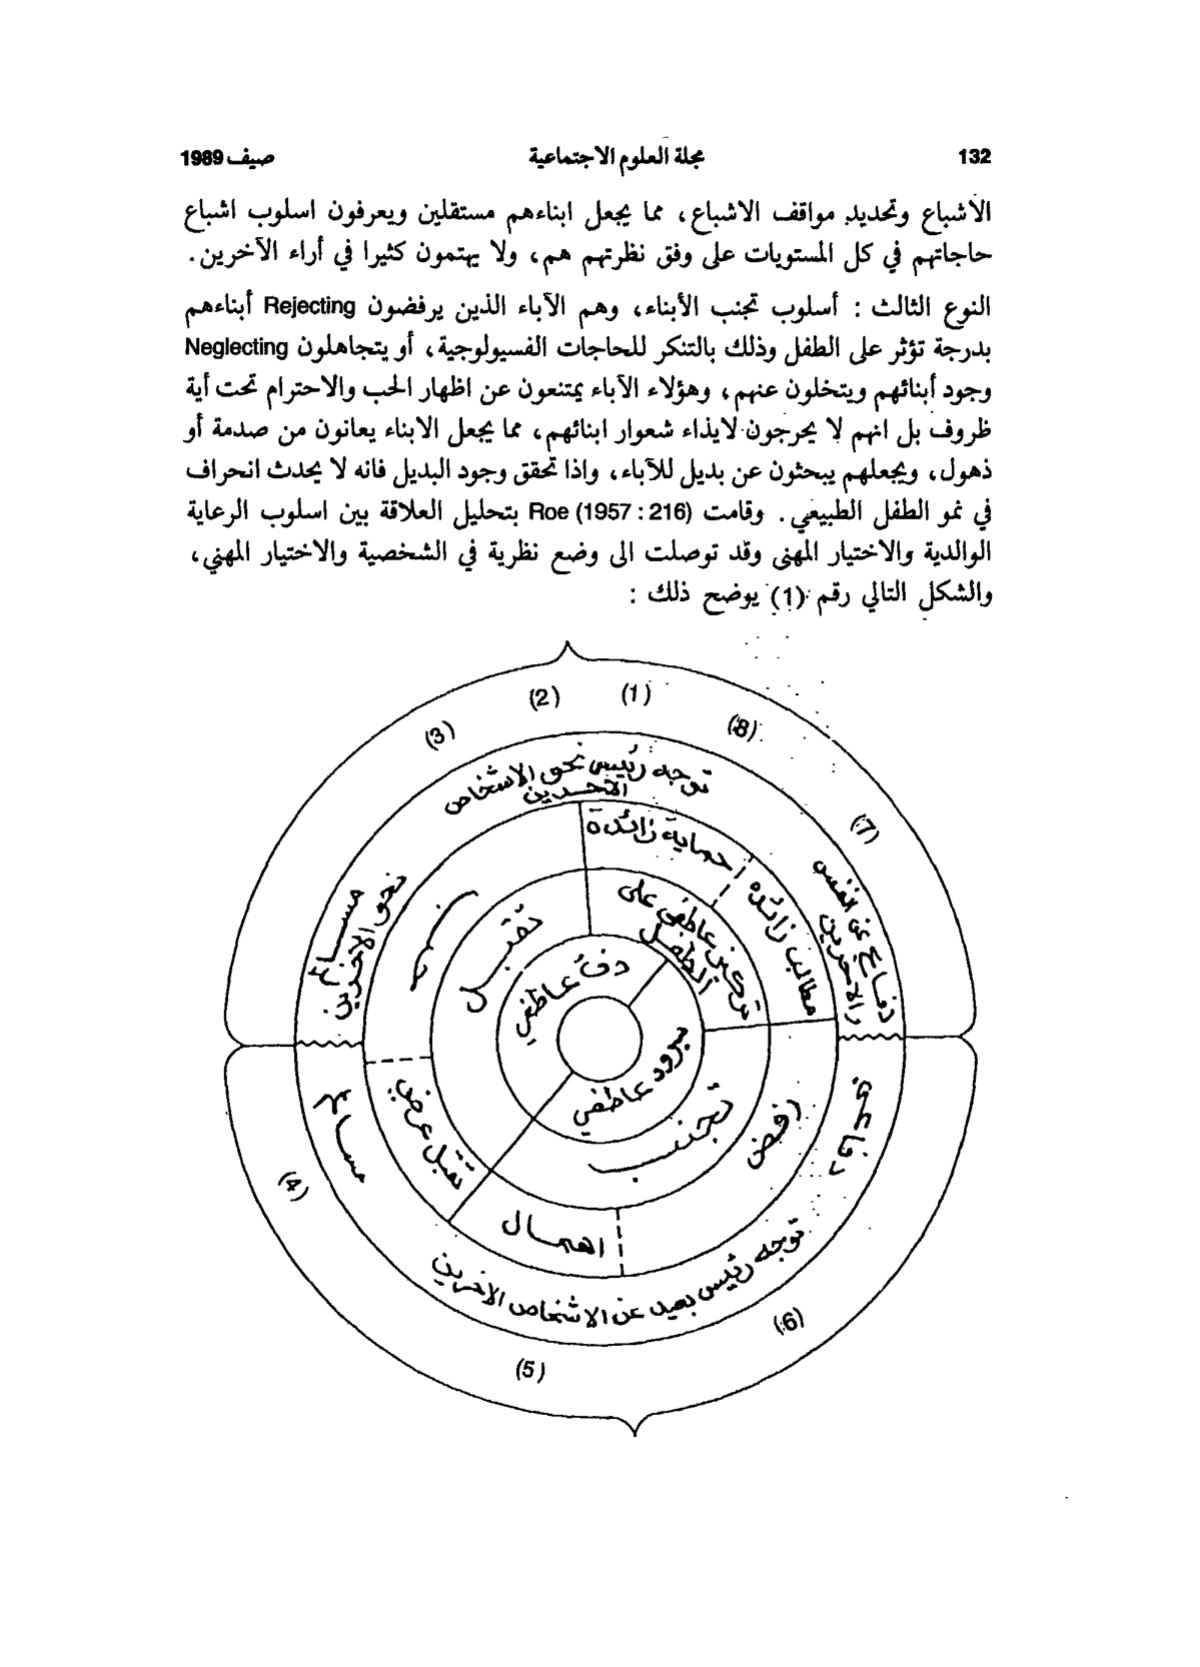 132 مجلة العلوم الاجتماعية صيف 1989
الاشباع وتحديد مواقف الاشباع، مما يجعل ابناءهم مستقلين ويعرفون اسلوب اشباع
حاجاتهم في كل المستويات على وفق نظرتهم هم، ولا يهتمون كثيرا في أراء الآخرين.
النوع الثالث : أسلوب تجنب الأبناء، وهم الآباء الذين يرفضون Rejecting أبناءهم
بدرجة تؤثر على الطفل وذلك بالتنكر للحاجات الفسيولوجية، أو يتجاهلون Neglecting
وجود أبنائهم ويتخلون عنهم، وهؤلاء الآباء يمتنعون عن اظهار الحب والاحترام تحت أية
ظروف بل انهم لا يحرجون لايذاء شعوار ابنائهم، مما يجعل الابناء يعانون من صدمة أو
ذهول، ويجعلهم يبحثون عن بديل للآباء، واذا تحقق وجود البديل فانه لا يحدث انحراف
في نمو الطفل الطبيعي. وقامت Roe (1957 : 216) بتحليل العلاقة بين اسلوب الرعاية
الوالدية والاختيار المهنى وقد توصلت الى وضع نظرية في الشخصية والاختيار المهني،
والشكل التالي رقم (1) يوضح ذلك :
(1)
(2)
(3)
(8)
(7)
توجه رئيس نحو الاشخاص
الآخرين
حماية زائدة
مطالب زائده
دفاع عن النفس
والآخرين
تركيز عاطفي على
الطفل
تقبل
دفء عاطفي
برود عاطفي
مسامح
نحو الآخرين
تجنب
رفض
دفاعي
تقبل عرضي
مسامح
اهمال
توجه رئيس بعيد عن الاشخاص الآخرين
(4)
(5)
(6)